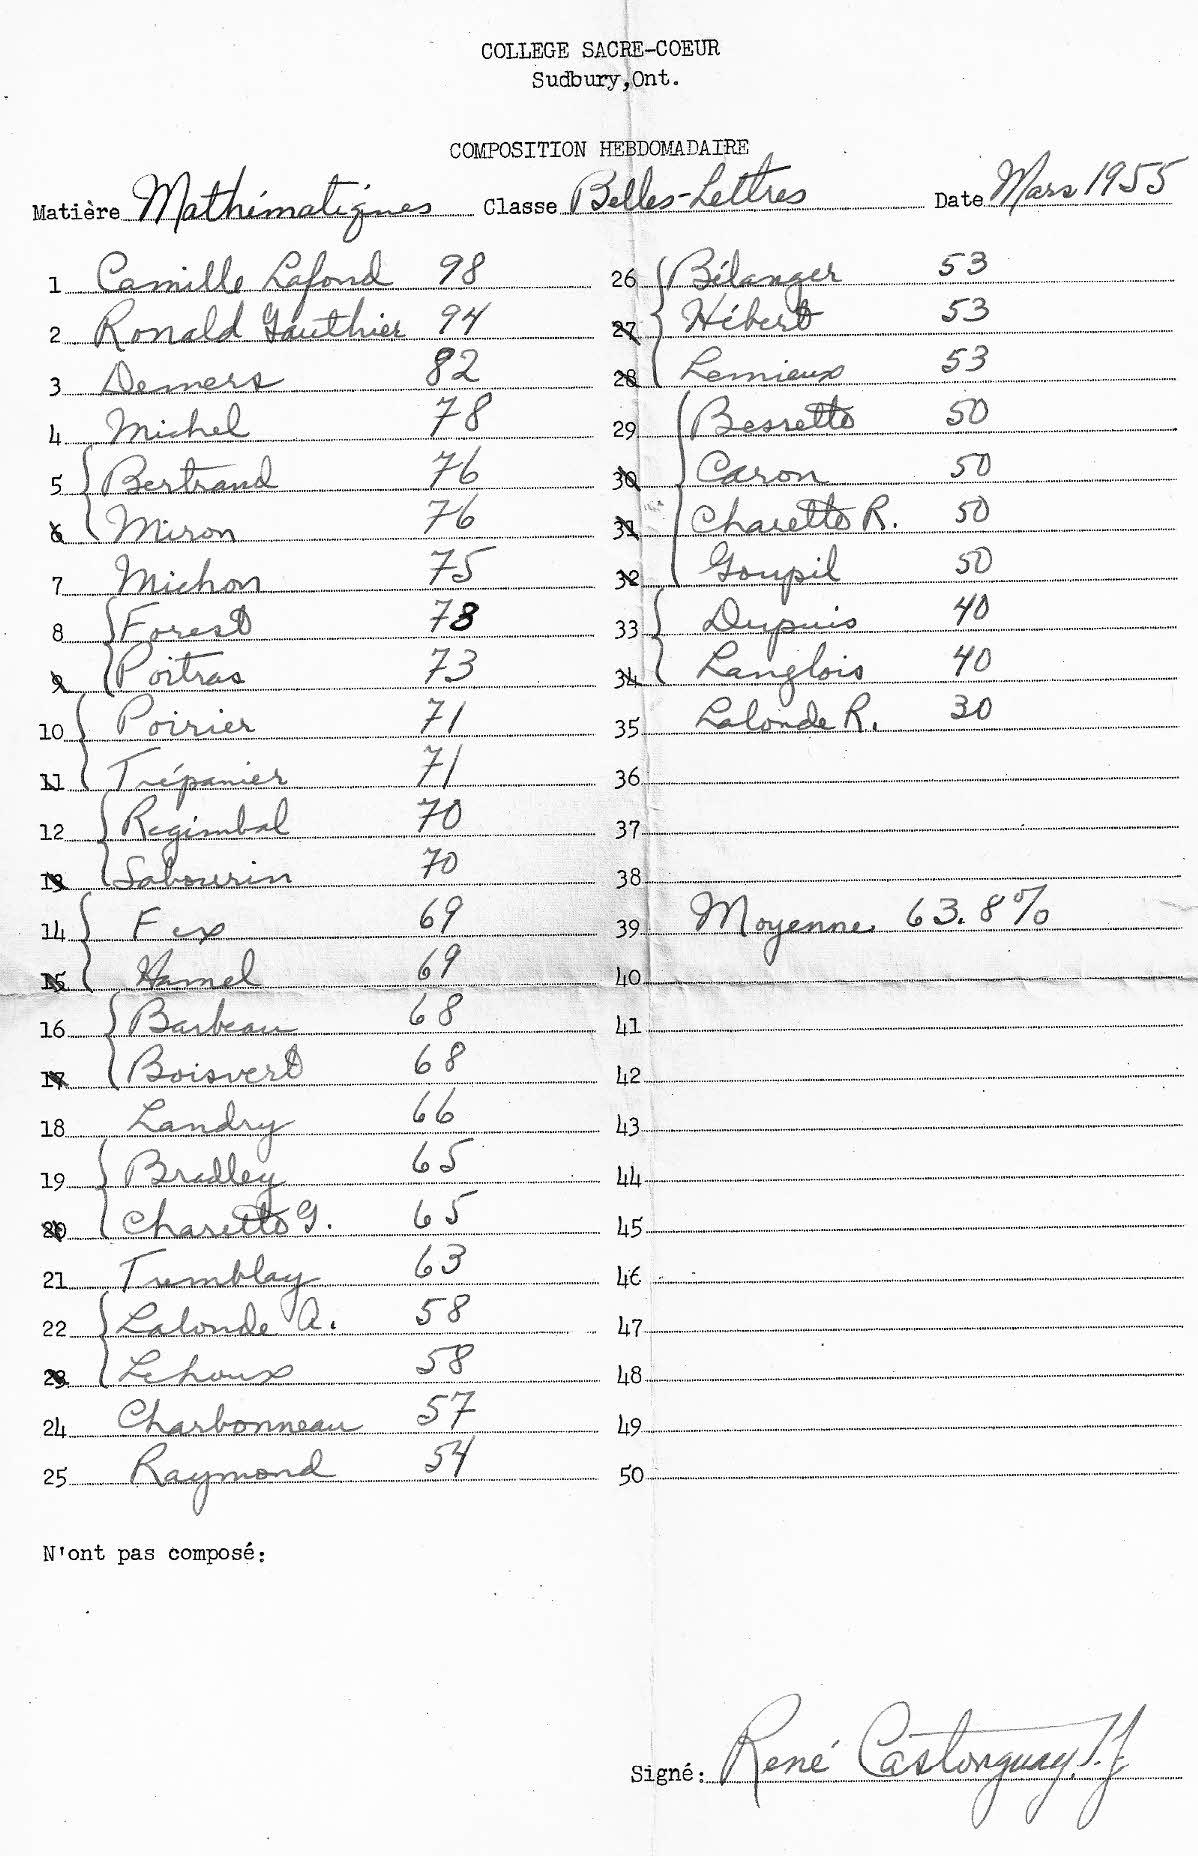 COLLEGE SACRE-COEUR
Sudbury,Ont.
COMPOSITION HEBDOMADAIRE
Matière Mathématiques Classe Belles-Lettres Date Mars 1955
1 Camille Lafond 98
2 Ronald Gauthier 94
3 Demers 82
4 Michel 78
5 Bertrand 76
6 Miron 76
7 Michon 75
8 Forest 73
9 Poitras 73
10 Poirier 71
11 Trépanier 71
12 Regimbal 70
13 Sabourin 70
14 Fex 69
15 Hamel 69
16 Barbeau 68
17 Boisvert 68
18 Landry 66
19 Bradley 65
20 Charette G. 65
21 Tremblay 63
22 Lalonde A. 58
23 Lehoux 58
24 Charbonneau 57
25 Raymond 54
26 Bélanger 53
27 Hébert 53
28 Lemieux 53
29 Bessette 50
30 Caron 50
31 Charette R. 50
32 Goupil 50
33 Dupuis 40
34 Langlois 40
35 Lalonde R. 30
36
37
38
39 Moyenne 63.8%
40
41
42
43
44
45
46
47
48
49
50
N'ont pas composé:
Signé: René Castonguay, S.J.